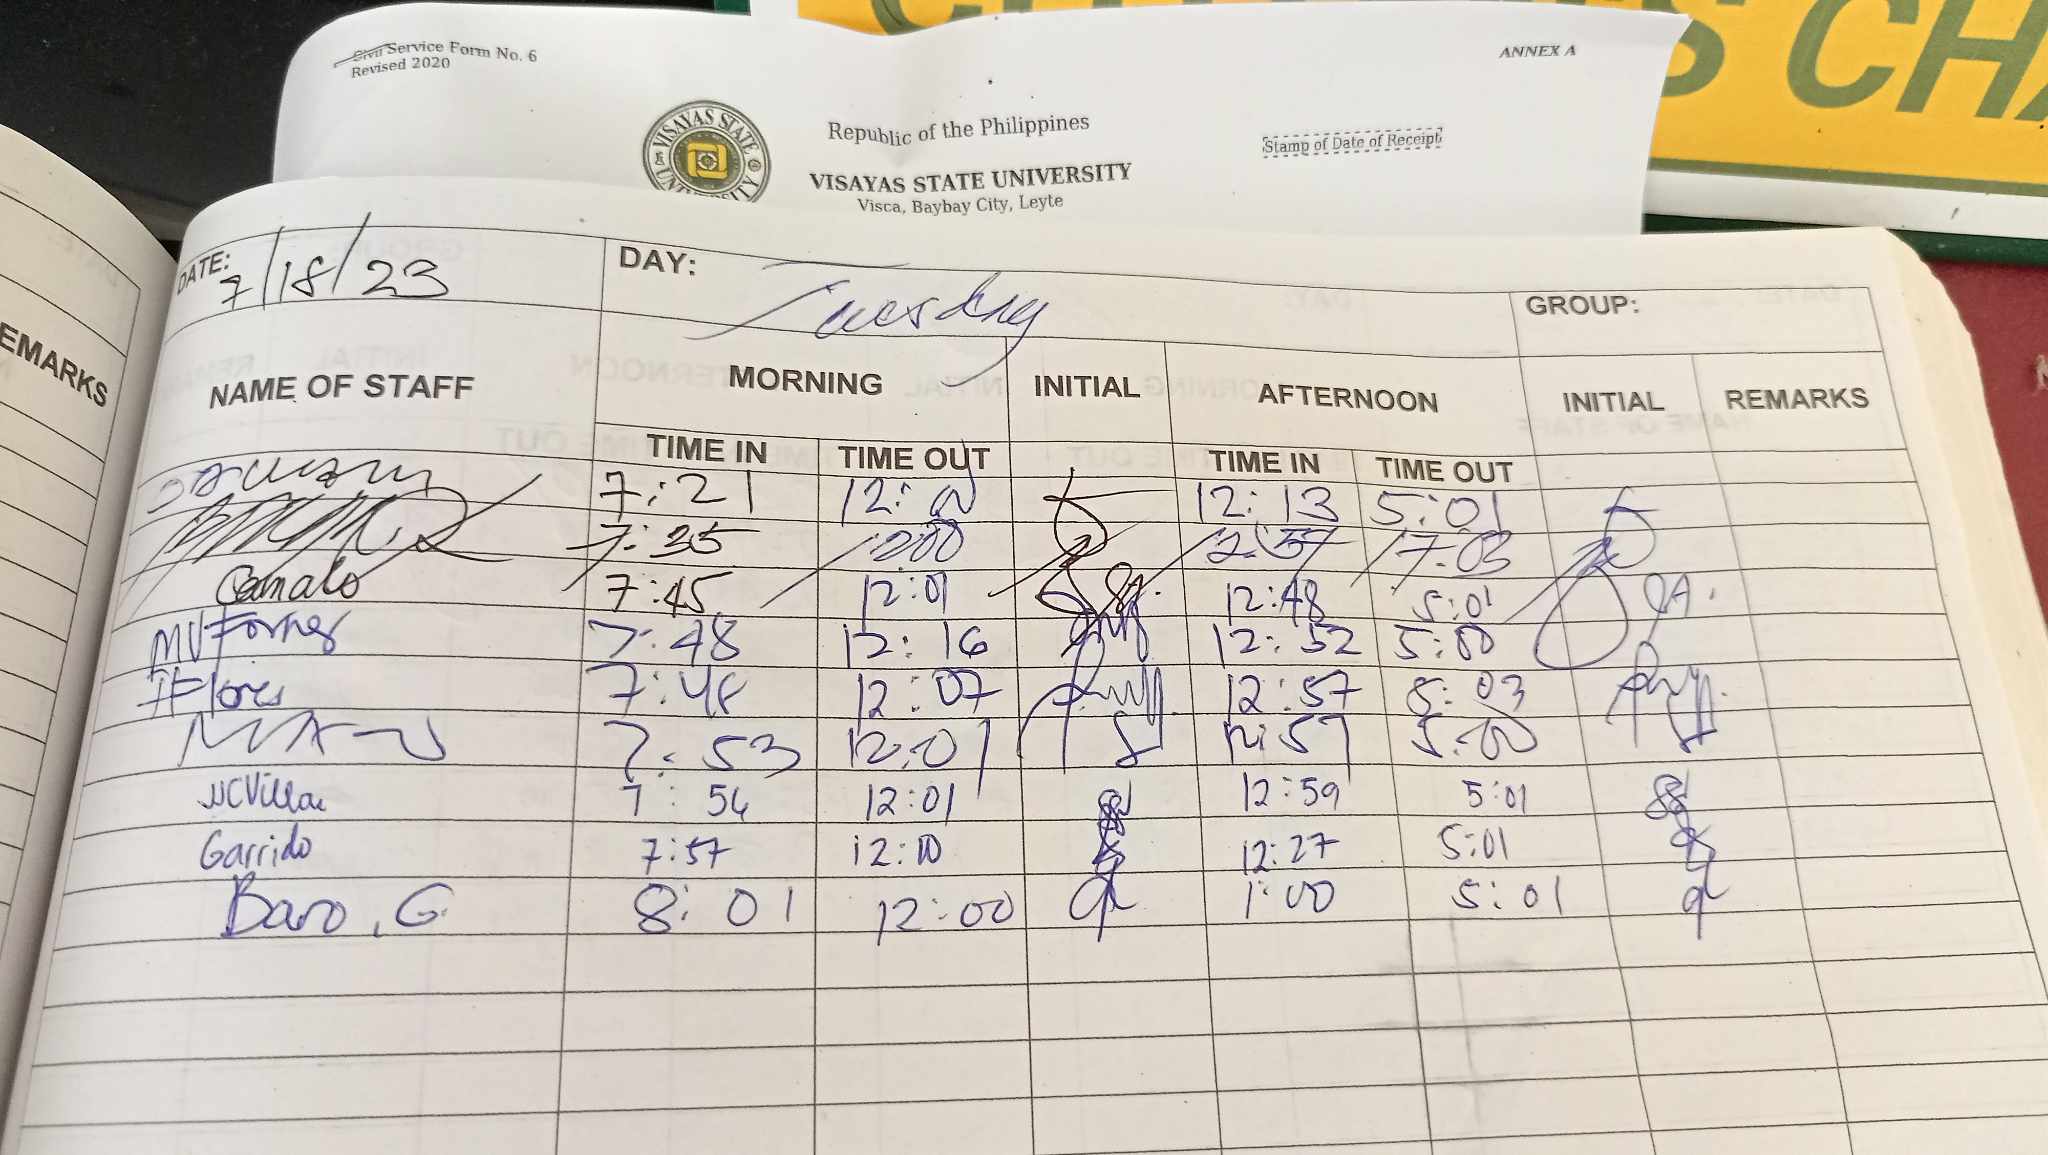 S CHA
Civil Service Form No. 6
Revised 2020
ANNEX A
VISAYAS STATE UNIVERSITY
Republic of the Philippines
VISAYAS STATE UNIVERSITY
Visca, Baybay City, Leyte
Stamp of Date of Receipt
EMARKS
DATE: 7/18/23 DAY: Tuesday GROUP:
NAME OF STAFF MORNING INITIAL AFTERNOON INITIAL REMARKS
TIME IN TIME OUT TIME IN TIME OUT
7:21 12:13 5:01
7:35 1200 12:57 17:03
7:45 12:01 12:48 5:01
MVFornes 7:48 12:16 12:52 5:00
Flores 7:48 12:07 12:57 5:03
7:53 12:01 12:57 5:00
MCVillar 7:54 12:01 12:59 5:01
Garrido 7:57 12:10 12:27 5:01
Baro, G. 8:01 12:00 1:00 5:01